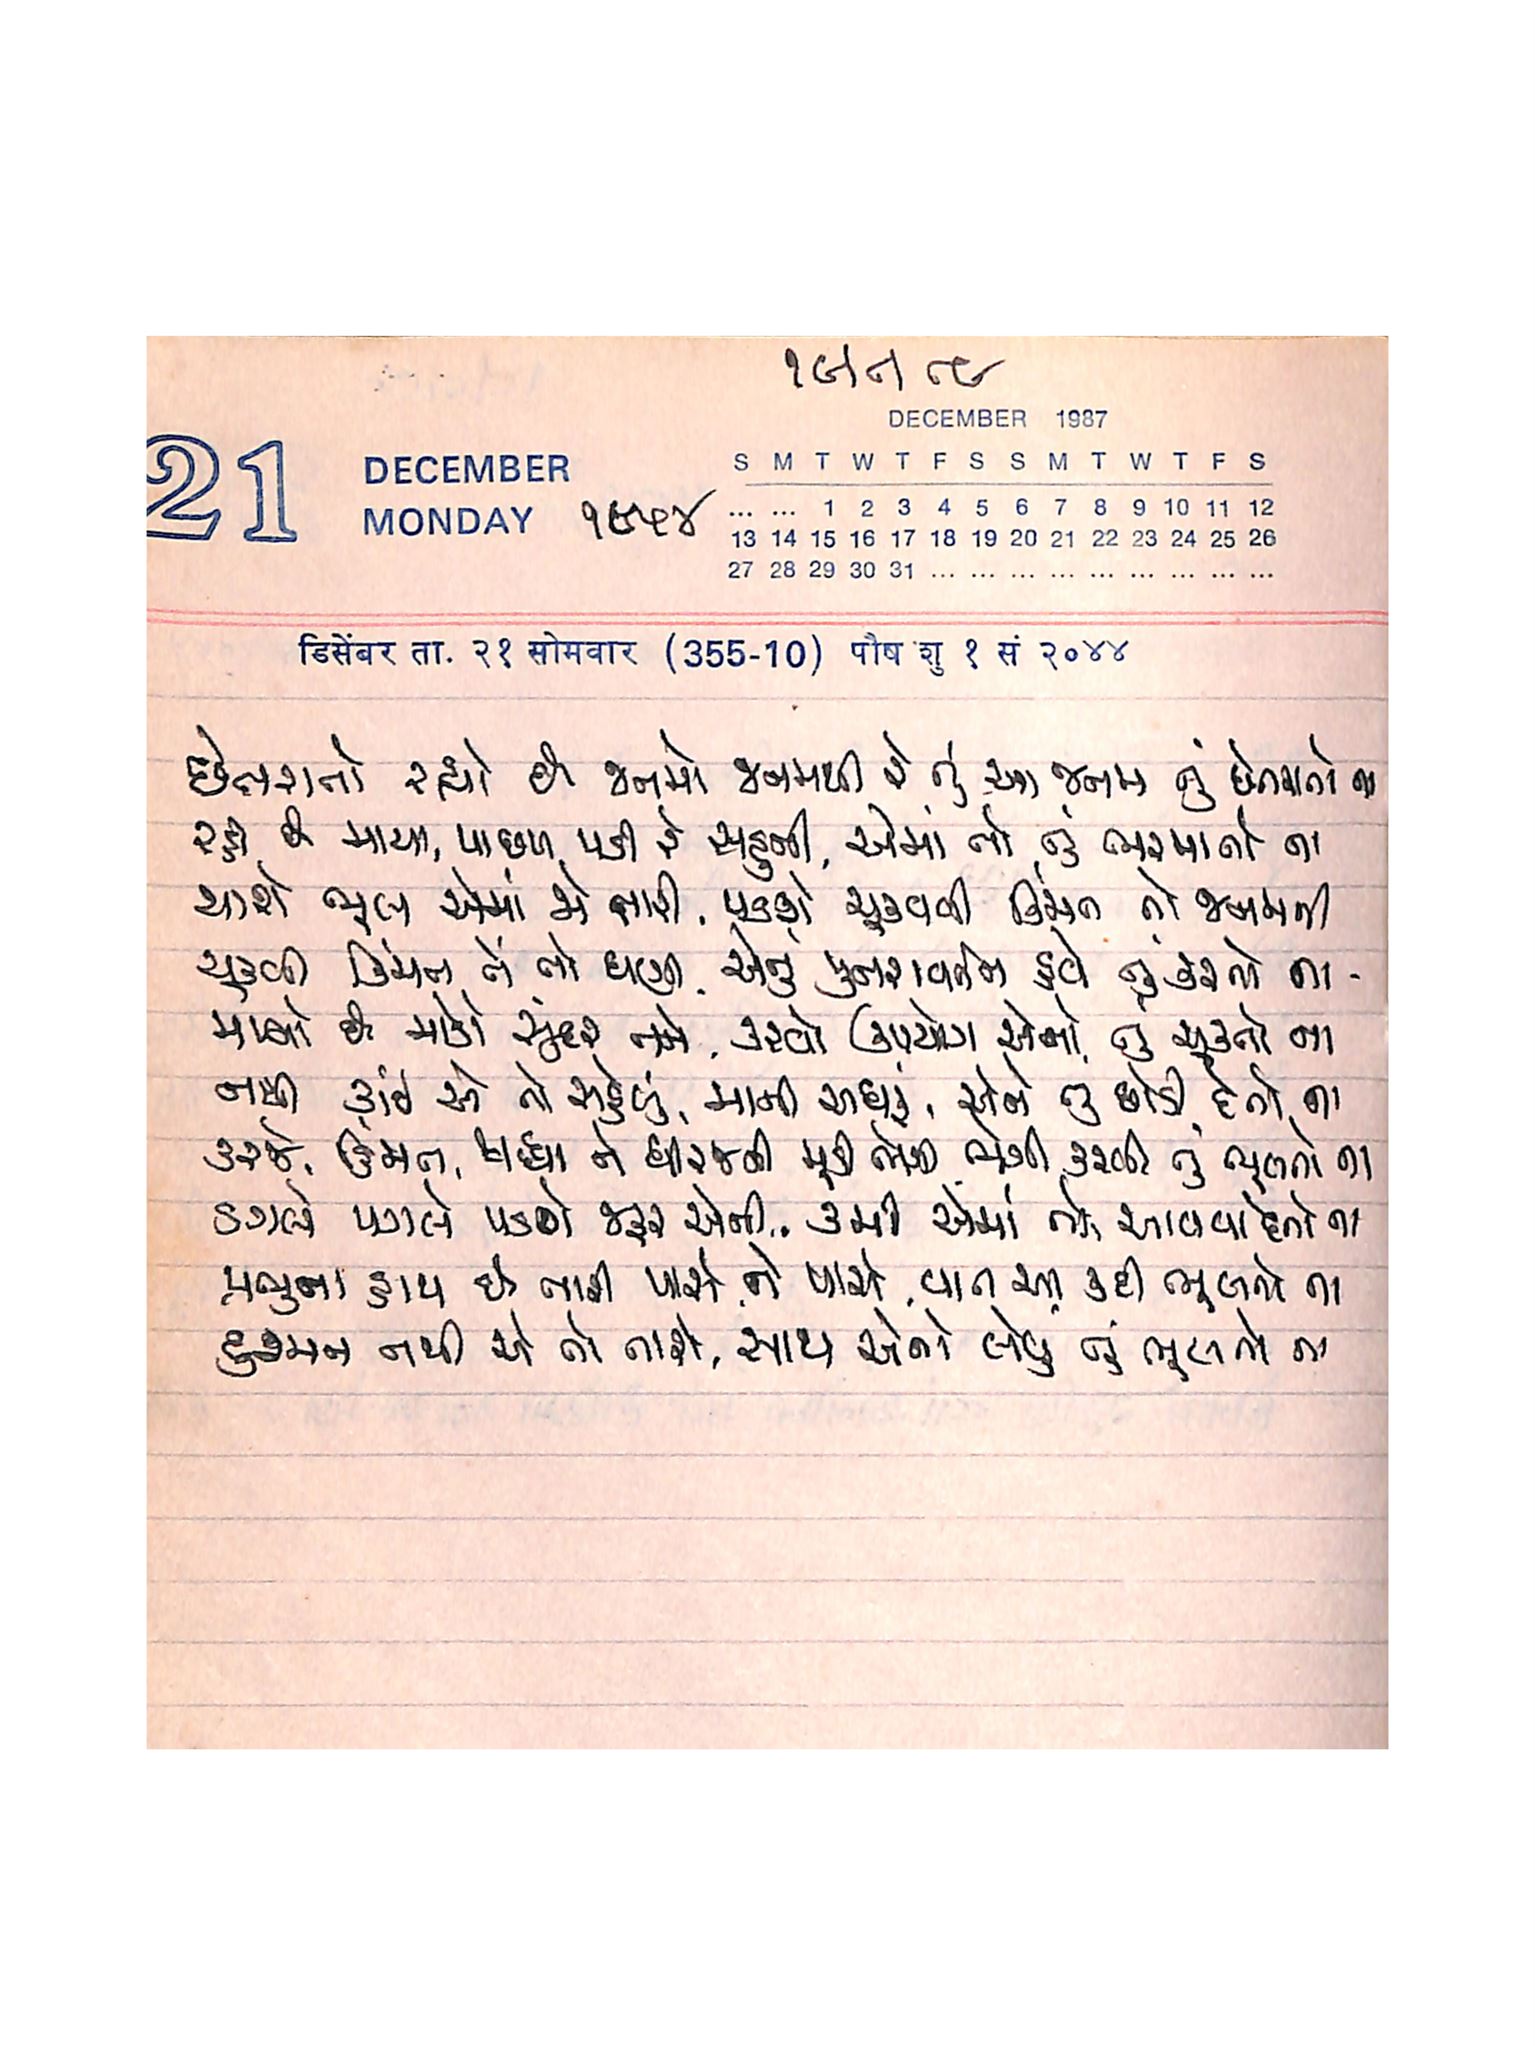 DECEMBER 1987
21 DECEMBER S M T W T F S S M T W T F S
MONDAY ૧૯૫૪ ... ... 1 2 3 4 5 6 7 8 9 10 11 12
13 14 15 16 17 18 19 20 21 22 23 24 25 26
27 28 29 30 31 ... ... ... ... ... ... ... ... ...
डिसेंबर ता. २१ सोमवार (355-10) पौष शु १ सं २०४४
છેતરાતો રહ્યો છે જનમો જનમથી રે તું આ જનમ તું છેતરાતો ના
રહી છે માયા, પાછળ પડી રે સહુની, એમાં તો તું ભરમાતો ના
થાશે ભૂલ એમાં જો તારી, પડશે ચૂકવવી કિંમત તો જનમની
ચૂકવી કિંમત તેં તો ઘણી, એનું પુનરાવર્તન હવે તું કરતો ના -
મળ્યો છે મોકો સુંદર તને, કરવો ઉપયોગ એનો, તું ચૂકતો ના
નથી કાંઈ એ તો સહેલું, માની અઘરું, એને તું છોડી દેતો ના
કરજે, હિંમત, શ્રધ્ધા ને ધીરજની મૂડી ભેગી કરવી તું ભૂલતો ના
ડગલે પગલે પડશે જરૂર એની.. કમી એમાં તો, આવવા દેતો ના
પ્રભુના હાથ છે તારી પાસે ને પાસે, વાત આ કદી ભૂલતો ના
દુશ્મન નથી એ તો તારો, સાથ એનો લેવું તું ભૂલતો ના